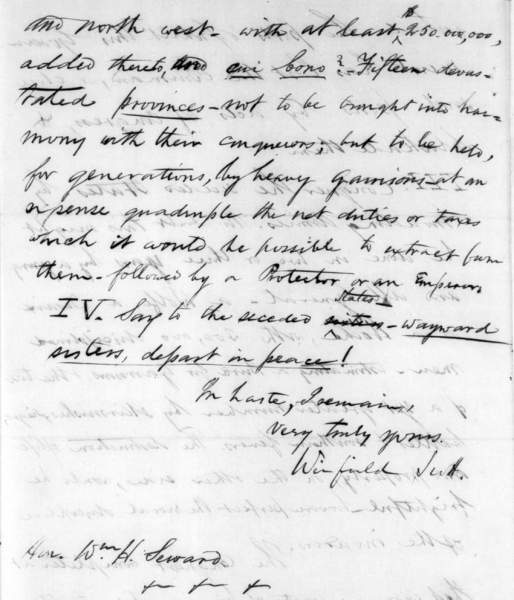 and north west - with at least $250.000,000,
added thereto, and cui bono? - Fifteen devas-
tated provinces - not to be brought into har-
mony with their conquerors; but to be held,
for generations, by heavy garrisons - at an
expense quadruple the net duties or taxes
which it would be possible to extract from
them - followed by a Protector or an Emperor.
IV. Say to the seceded sisters States - wayward
sisters, depart in peace!
In haste, I remain,
Very truly yours.
Winfield Scott.
Hon. Wm. H. Seward
+ + +